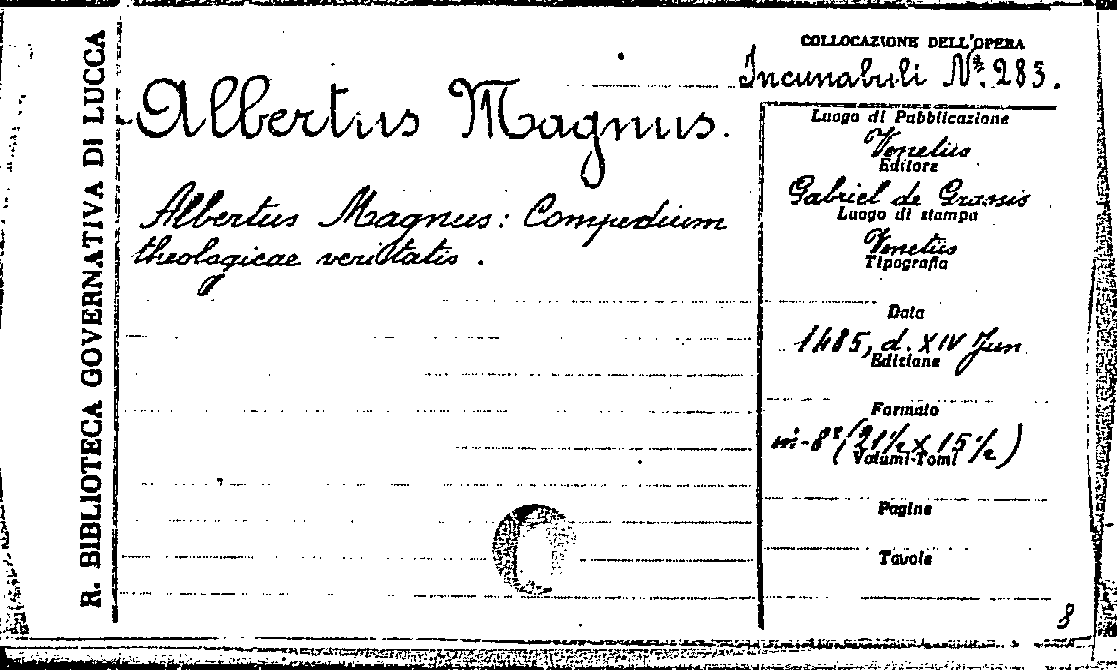 R. BIBLIOTECA GOVERNATIVA DI LUCCA
COLLOCAZIONE DELL'OPERA
Incunabuli Nº. 283.
Albertus Magnus.
Albertus Magnus: Compedium
theologicae veritatis.
Luogo di Pubblicazione
Venetiis
Editore
Gabriel de Grassis
Luogo di stampa
Venetiis
Tipografia
Data
1485, d. XIV Jun
Edizione
Formato
in-8º (21½ x 15½)
Volumi-Tomi
Pagine
Tavole
8